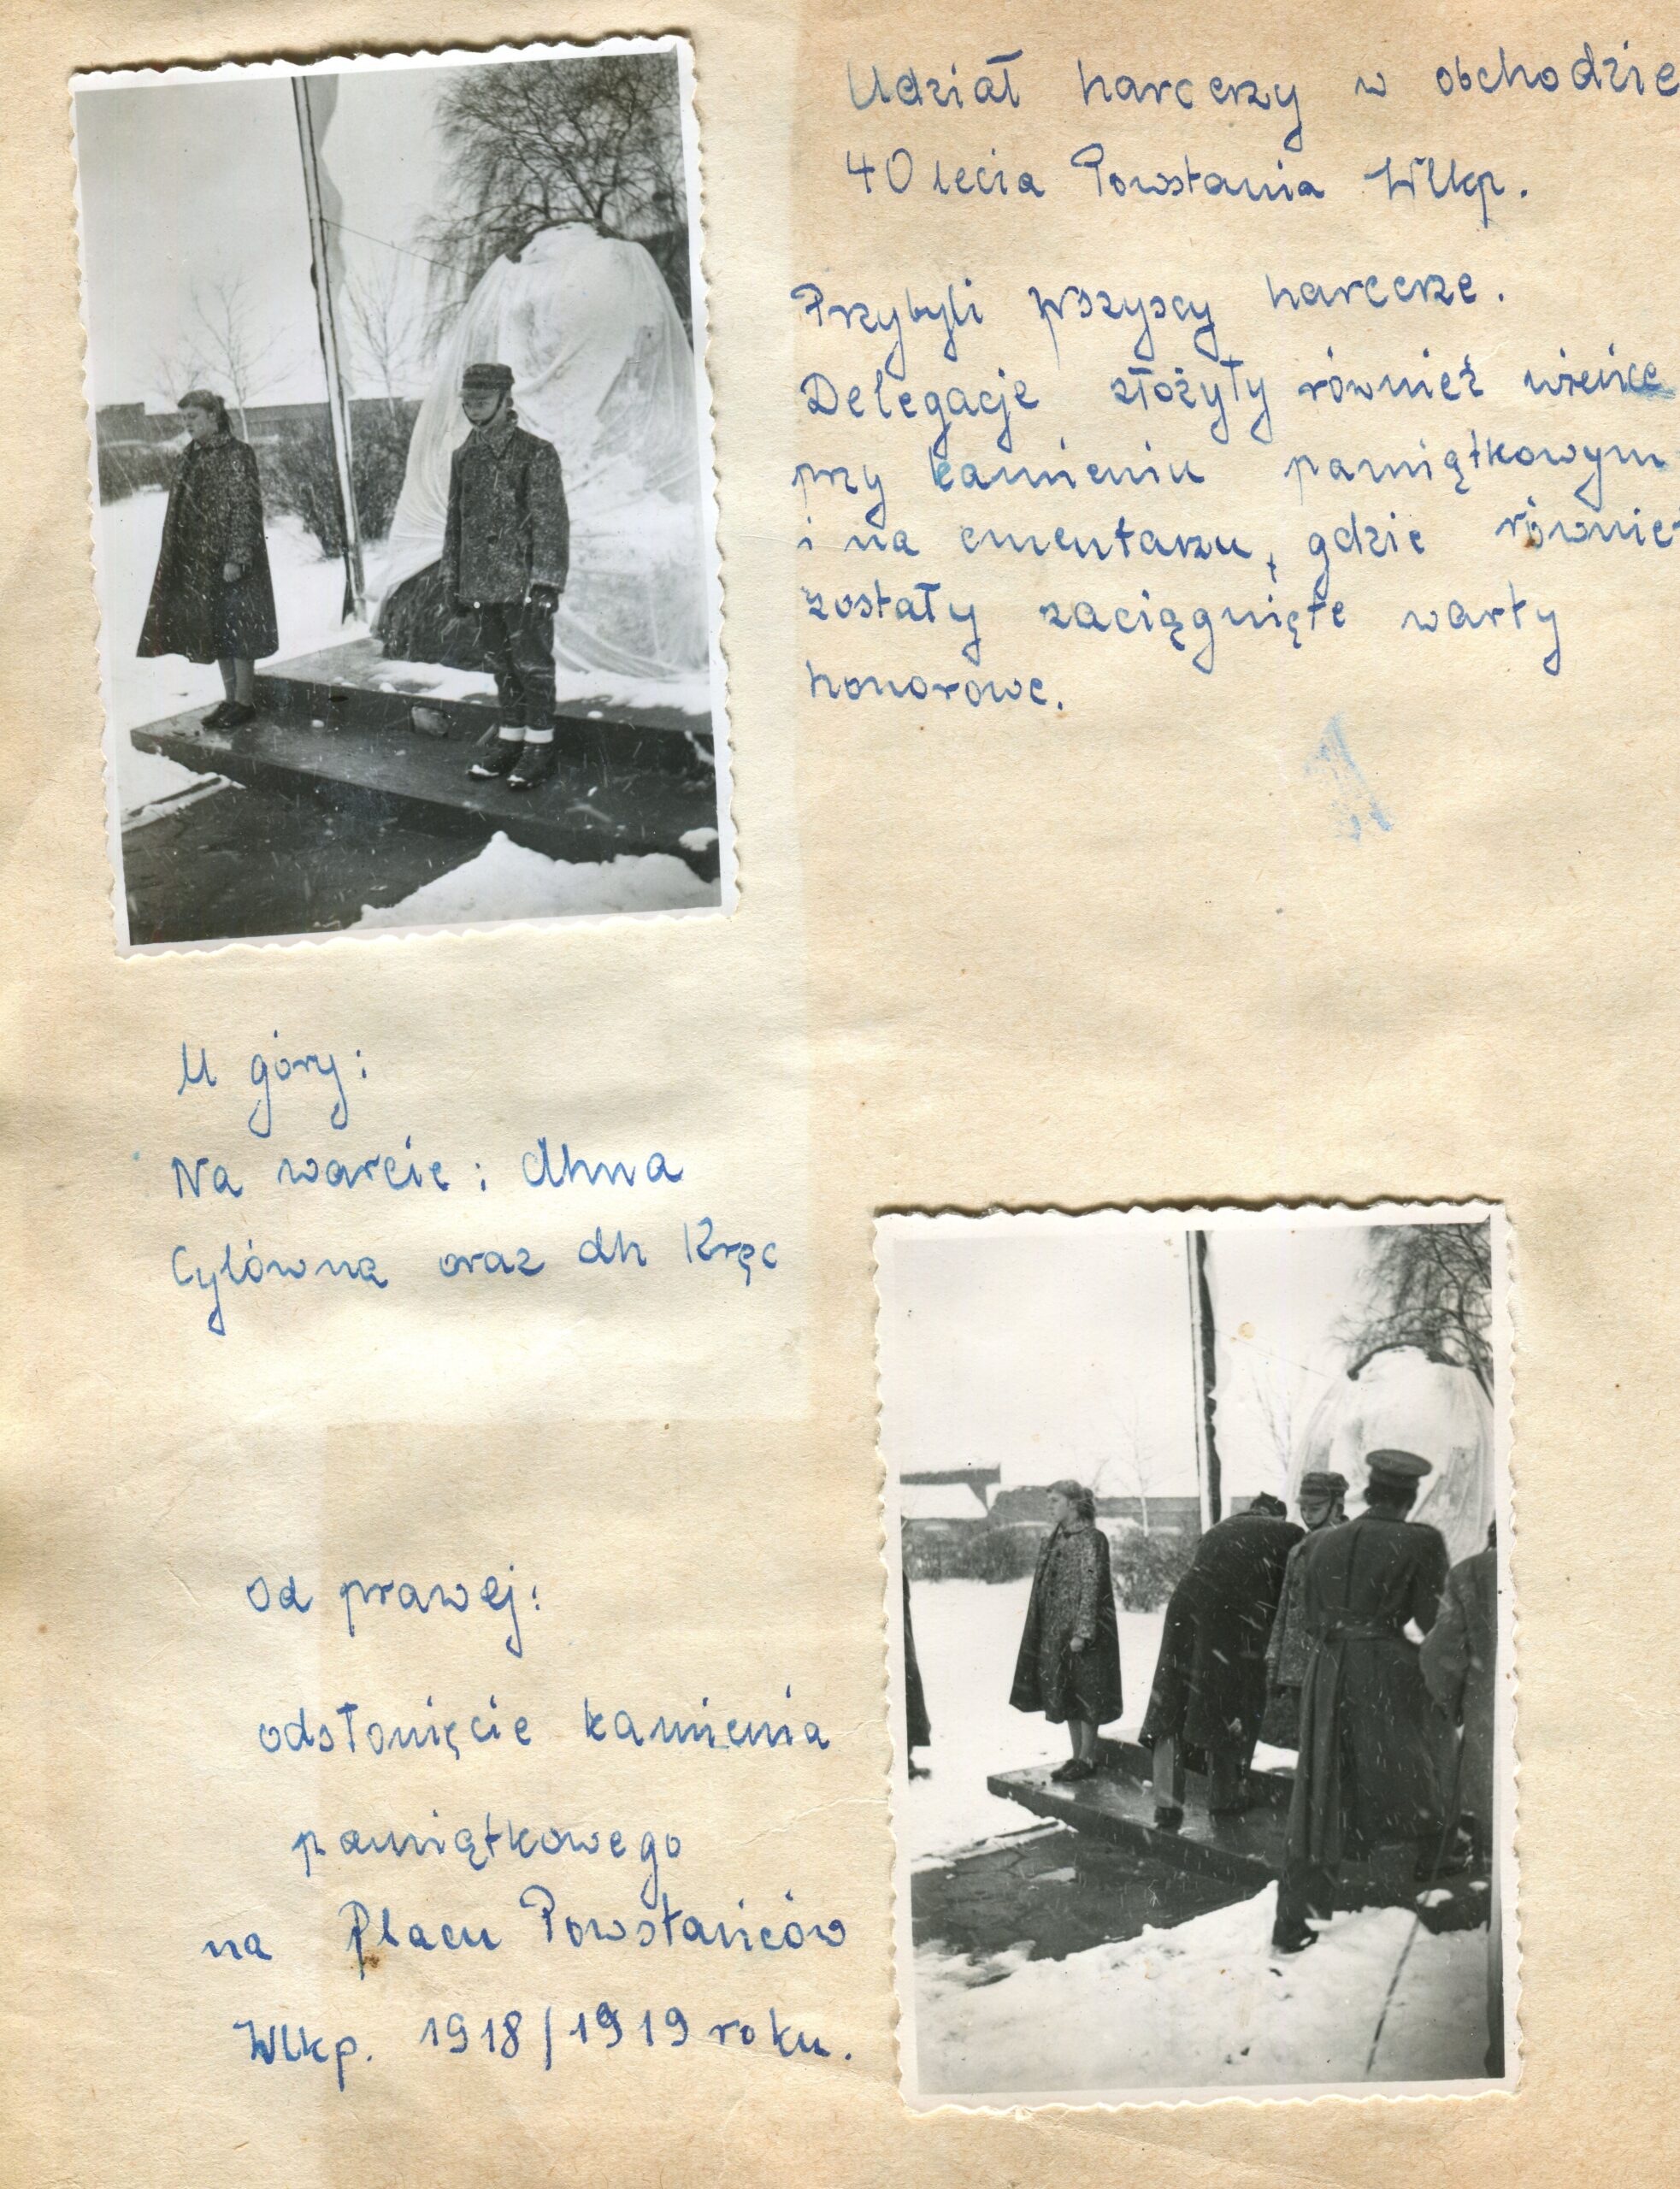 Udział harcerzy w obchodzie
40 lecia Powstania Wlkp.
Przybyli wszyscy harcerze.
Delegacje złożyły również wieńce
przy kamieniu pamiątkowym
i na cmentarzu, gdzie równie
zostały zaciągnięte warty
honorowe.
U góry:
Na warcie: dhna
Cylówna oraz dh Kręc
Od prawej:
odsłonięcie kamienia
pamiątkowego
na Placu Powstańców
Wlkp. 1918/1919 roku.